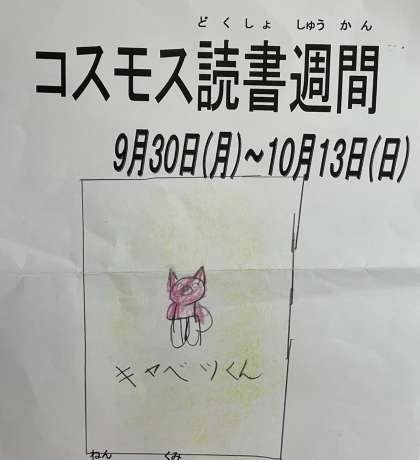 どくしょ しゅうかん
コスモス読書週間
9月30日(月)~10月13日(日)
キャベツくん
ねん くみ